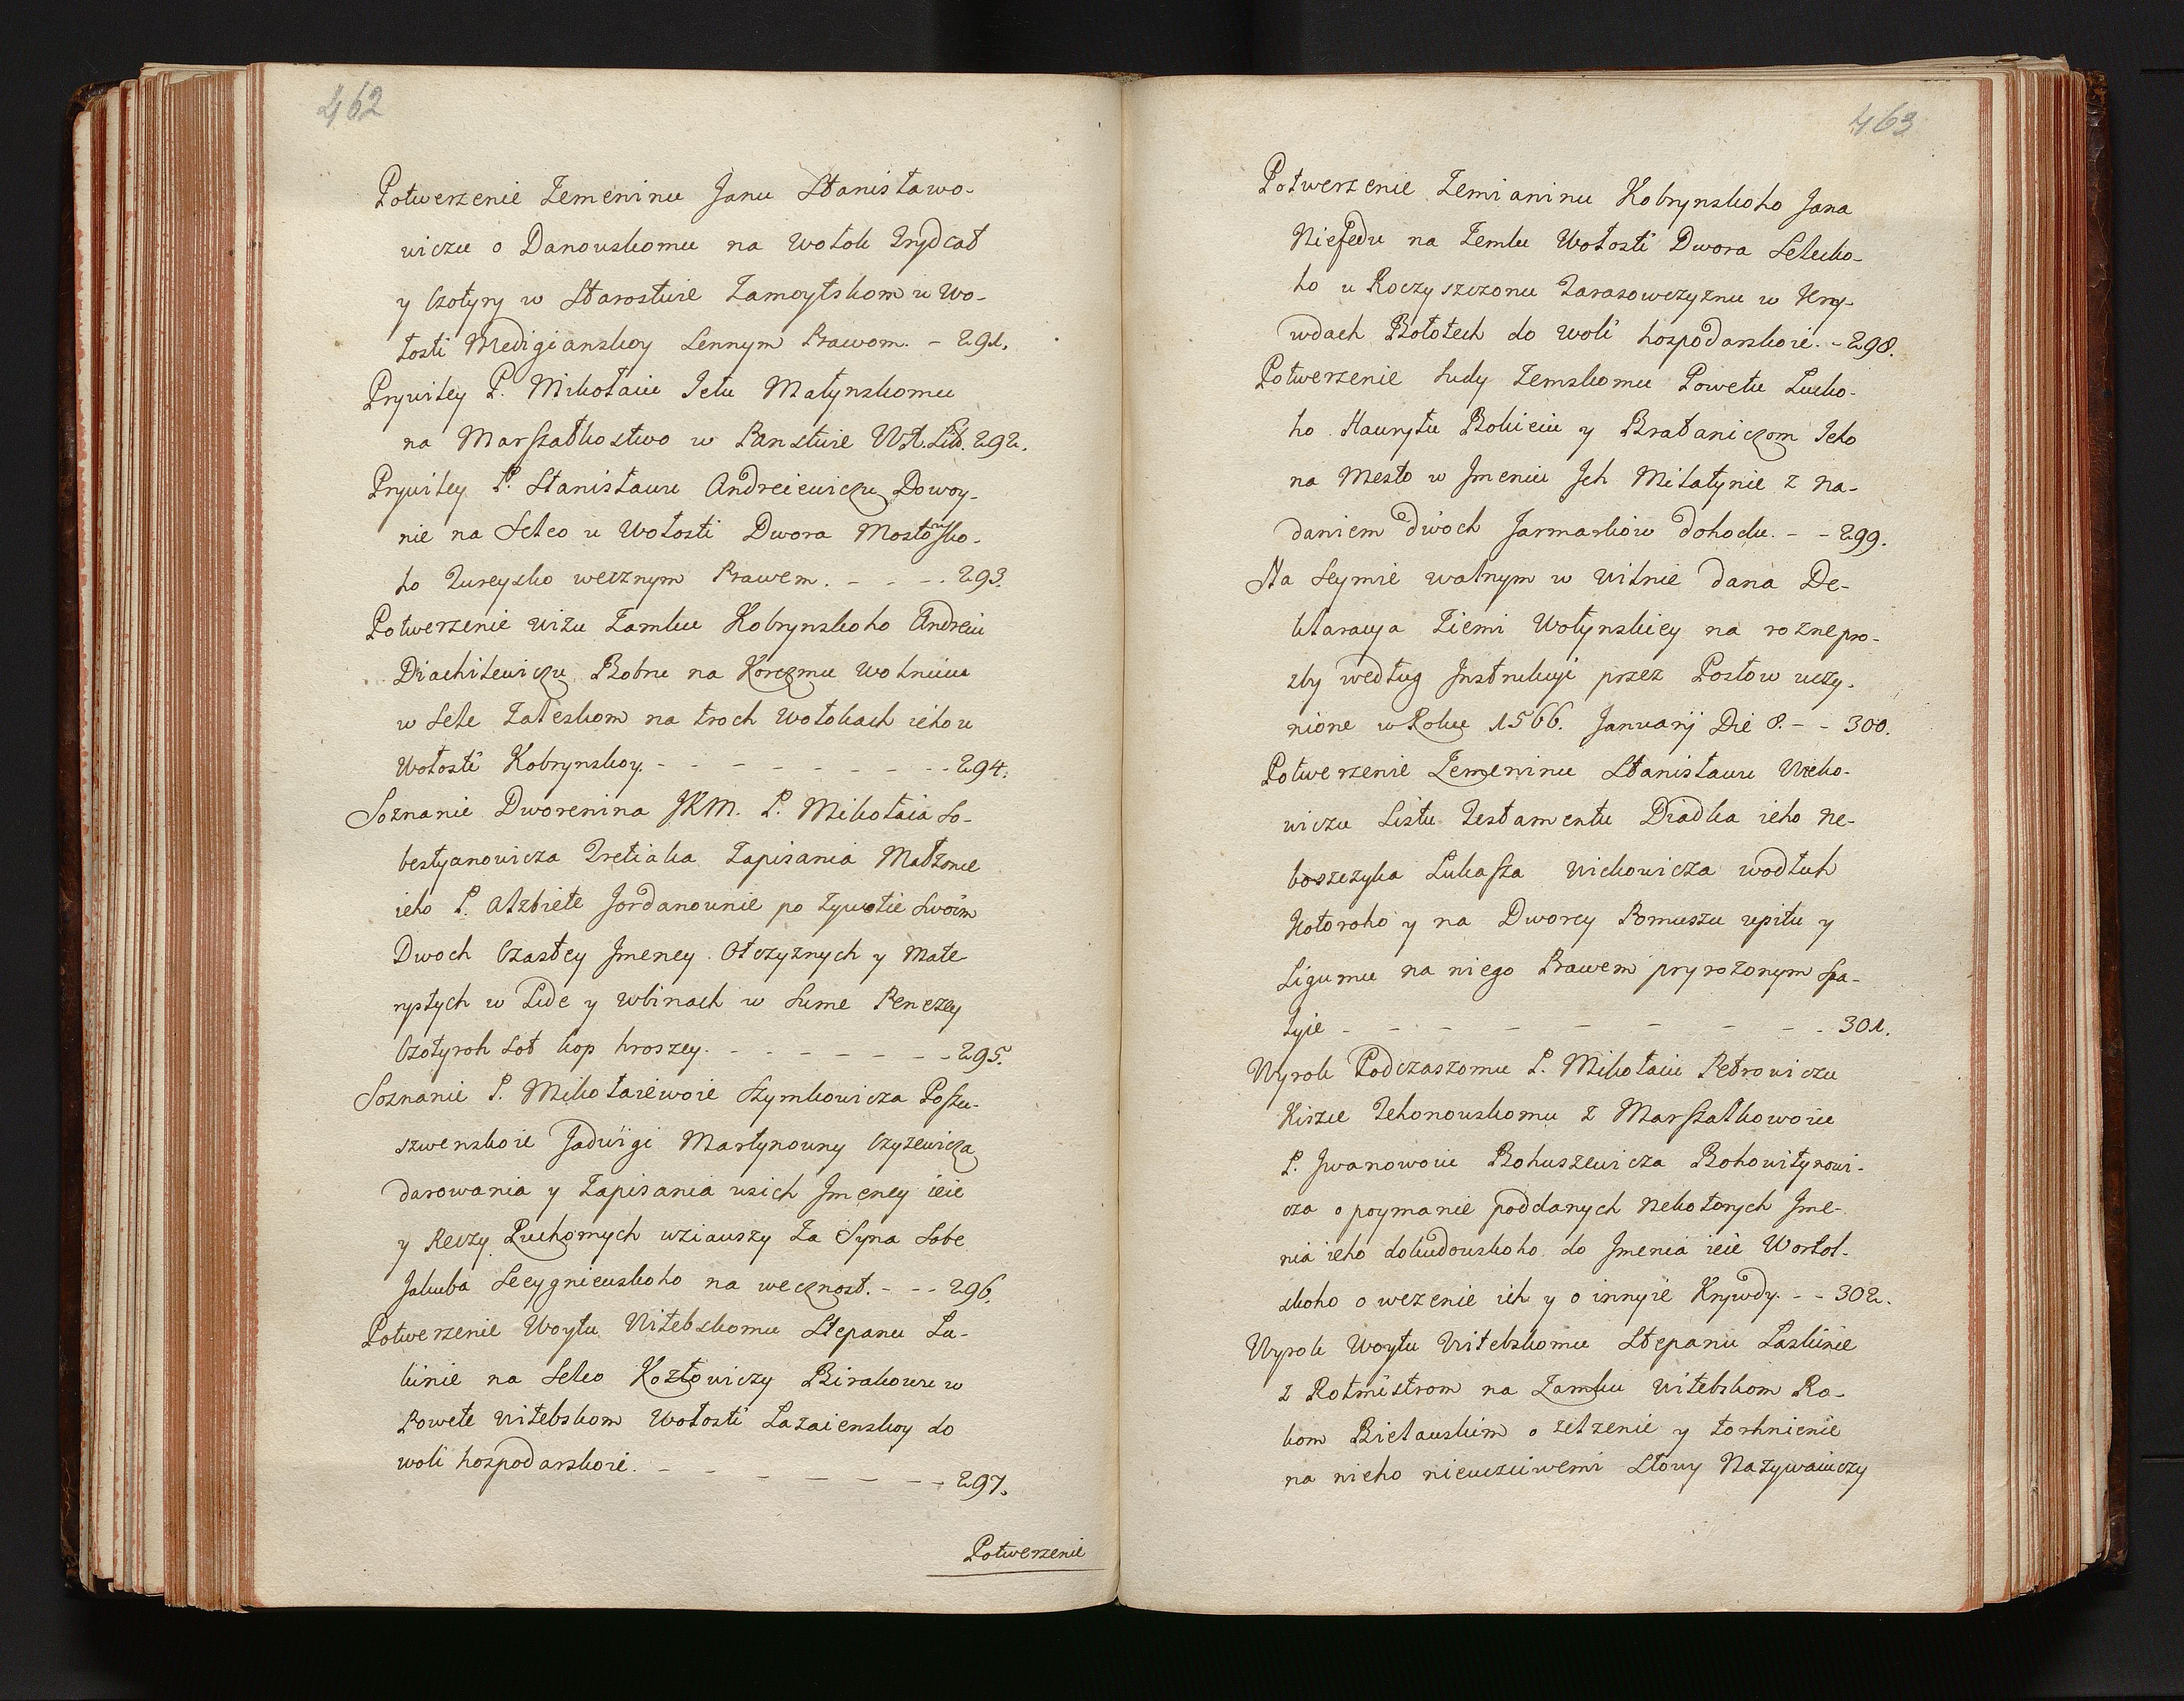 462
Potwerzenie Zemeninu Janu Stanisławo-
wiczu o Danouskomu na Wołok Trydcat
y Czotyry w Starostwie Zamoytskom u Wo-
łosti Medigianskoy Lennym Prawom. - 291.
Prywiley P. Mikołaiu Ietu Małynskomu
na Marszałkostwo w Panstwie W.X.Lit. 292.
Prywiley P. Stanisławu Andreiewiczu Dowoy-
nie na Selco u Wołosti Dwora Mostowsko-
ho Tureysko wecznym Prawem. - - - 293.
Potwerzenie wizu Zamku Kobrynskoho Andreiu
Diachilewiczu Bobru na Korczmu Wolnuiu
w Sele Zaleskom na troch Wołokach ieho u
Wołosti Kobrynskoy. - - - - - - - - 294.
Soznanie Dworenina JKM. P. Mikołaia So-
bestyanowicza Tretiaka Zapisania Małzonce
ieho P. Alzbiete Jordanounie po Zywotie Swoim
Dwoch Czastey Jmeney Otczyznych y Mate-
rystych w Lide y wbinach w Sume Penezey
Czotyroh Sot kop hroszey. - - - - - - - 295.
Soznanie P. Mikołaiewoie Szymkowicza Poszu-
szwenskoie Jadwigi Martynowny Czyzewicza
darowania y Zapisania wsich Jmeney ieie
y Reczy Ruchomych wziauszy Za Syna Sobe
Jakuba Secygnieuskoho na wecznost. - - - 296.
Potwerzenie Woytu Witebskomu Stepanu La-
kinie na Selco Kozłowiczy Birakowu w
Powete Witebskom Wołosti Lazaienskoy do
woli hospodarskoie. - - - - - - - 297.
Potwerzenie
463
Potwerzenie Zemianinu Kobrynskoho Jana
Niefedu na Zemlu Wołosti Dwora Selecko-
ho u Roczyszczonu Tarasowczyznu w Kry-
wdach Bołotech do woli hospodarskoie. - 298.
Potwerzenie Sudy Zemskomu Powetu Lucko-
ho Hawryłu Bokieiu y Brataniczom Jeho
na Mesto w Jmeniu Jch Miłatynie z na-
daniem dwoch Jarmarków dohodu. - - 299.
Na Seymie walnym w Wilnie dana De-
klaracya Ziemi Wołynskiey na rozne pro-
zby według Jnstrukcyi przez Posłow uczy-
nione w Roku 1566. Januarij Die 8. - - 300.
Potwerzenie Zemeninu Stanisławu Wicko-
wiczu Listu Testamentu Diadka ieho Ne-
boszczyka Lukasza Wickowicza wodłuh
Kotoroho y na Dworcy Pomuszu upitu y
Ligumu na niego Prawem pryrozonym Spa-
łyie - - - - - - - - 301.
Wyrok Podczaszomu P. Mikołaiu Petrowiczu
Kiszce Tehonouskomu z Marszałkowoiu
P. Jwanowoiu Bohuszewicza Bohowitynowi-
cza o poymanie poddanych Nekotorych Jme-
nia ieho dokudouskoho do Jmenia ieie Wortol-
skoho o wezenie ich y o innyie Krywdy. - - 302.
Wyrok Woytu Witebskomu Stepanu Laskinie
z Rotmistrom na Zamku Witebskom Ro-
kom Bielauskim o zelzenie y torhnienie
na nieho nieuczciwemi Słowy Nazywaiuczy